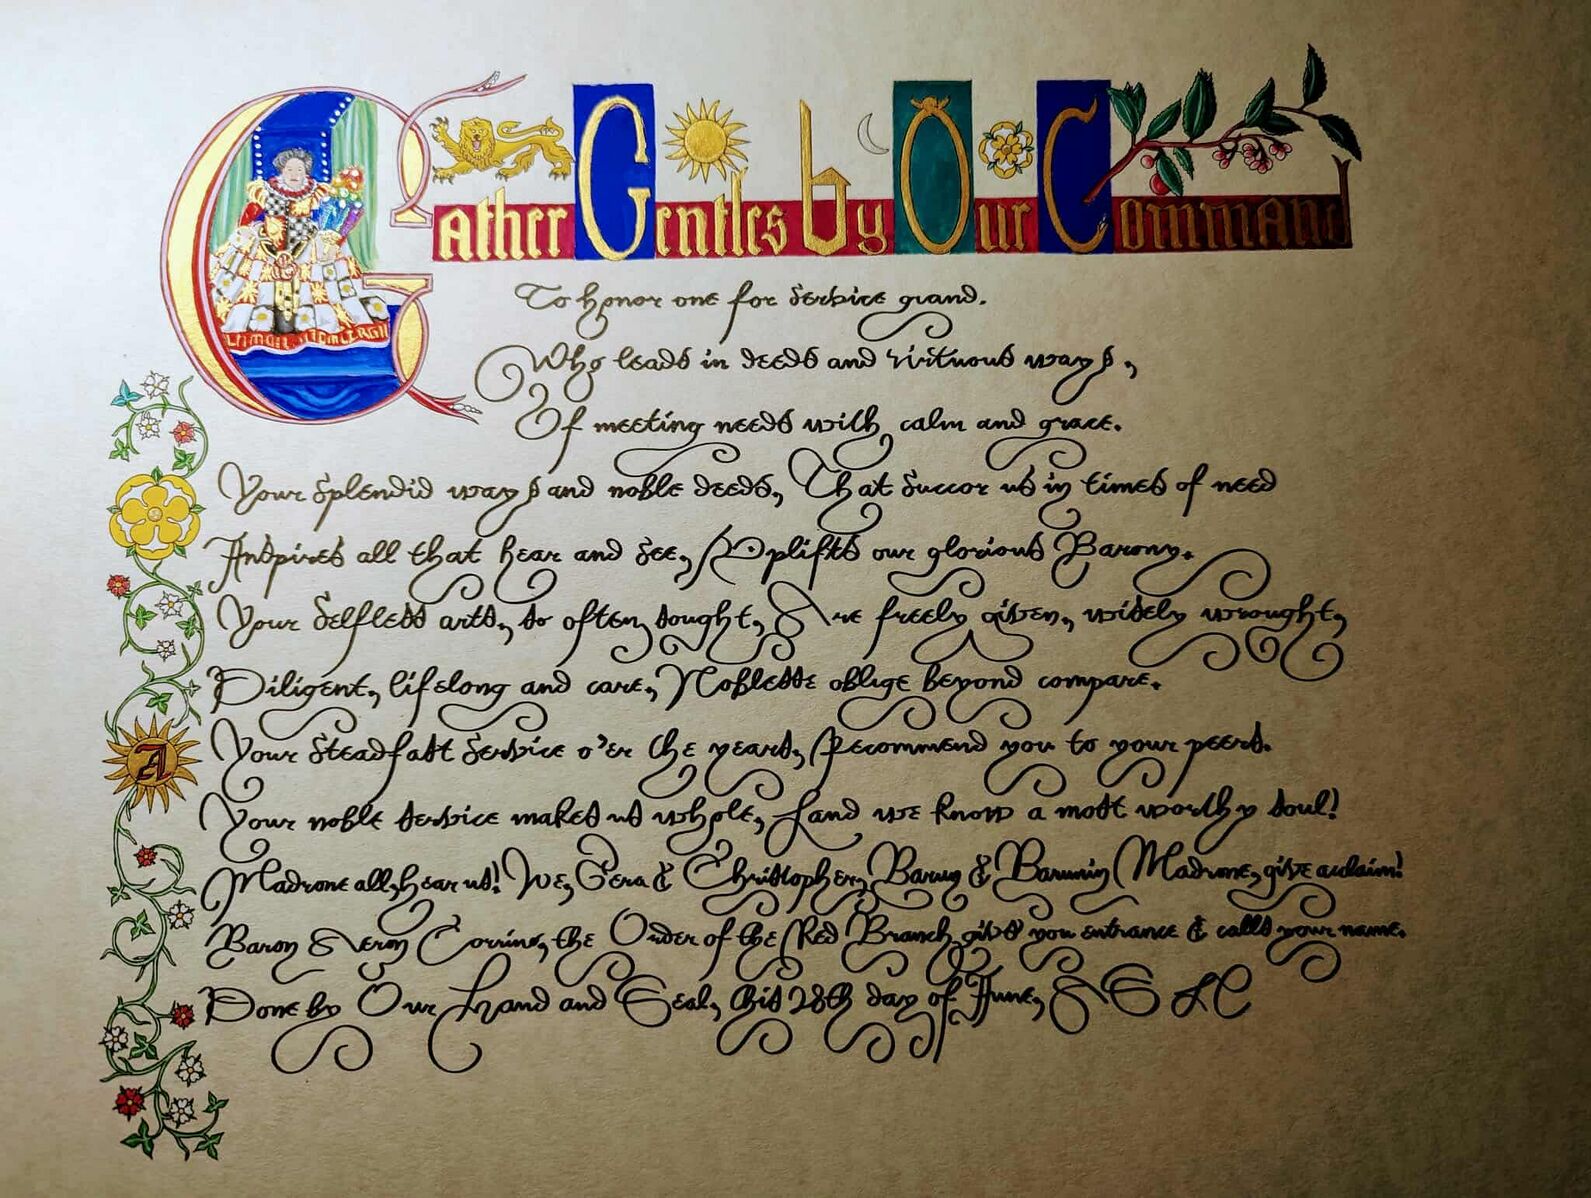 Gather Gentles by Our Command
To honor one for service grand.
Who leads in deeds and virtuous ways,
Of meeting needs with calm and grace.
Your splendid ways and noble deeds, That succor us in times of need
Inspires all that hear and see, Uplifts our glorious Barony.
Your selfless arts, so often sought, Are freely given, widely wrought,
Diligent, lifelong and care, Noblesse oblige beyond compare.
A
Your steadfast service o'er the years, Recommend you to your peers.
Your noble service makes us whole, And we know a most worthy soul!
Madrone all, hear us! We, Gera & Christopher, Baron & Baronin Madrone, give acclaim!
Baron the Order of the Red Branch gives you entrance & calls your name.
Done by Our Hand and Seal, this 28th day of June,